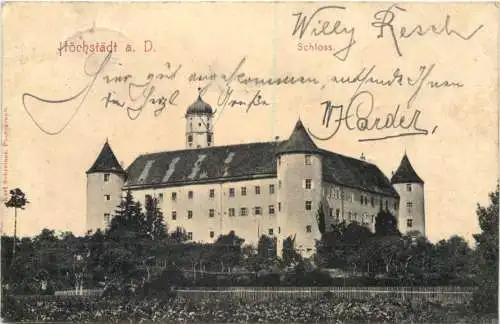 Höchstädt a. D.
Schloss.
Willy Resch
Hier gut angekommen, entsende Ihnen
herzl. Grüße
M. Harder.